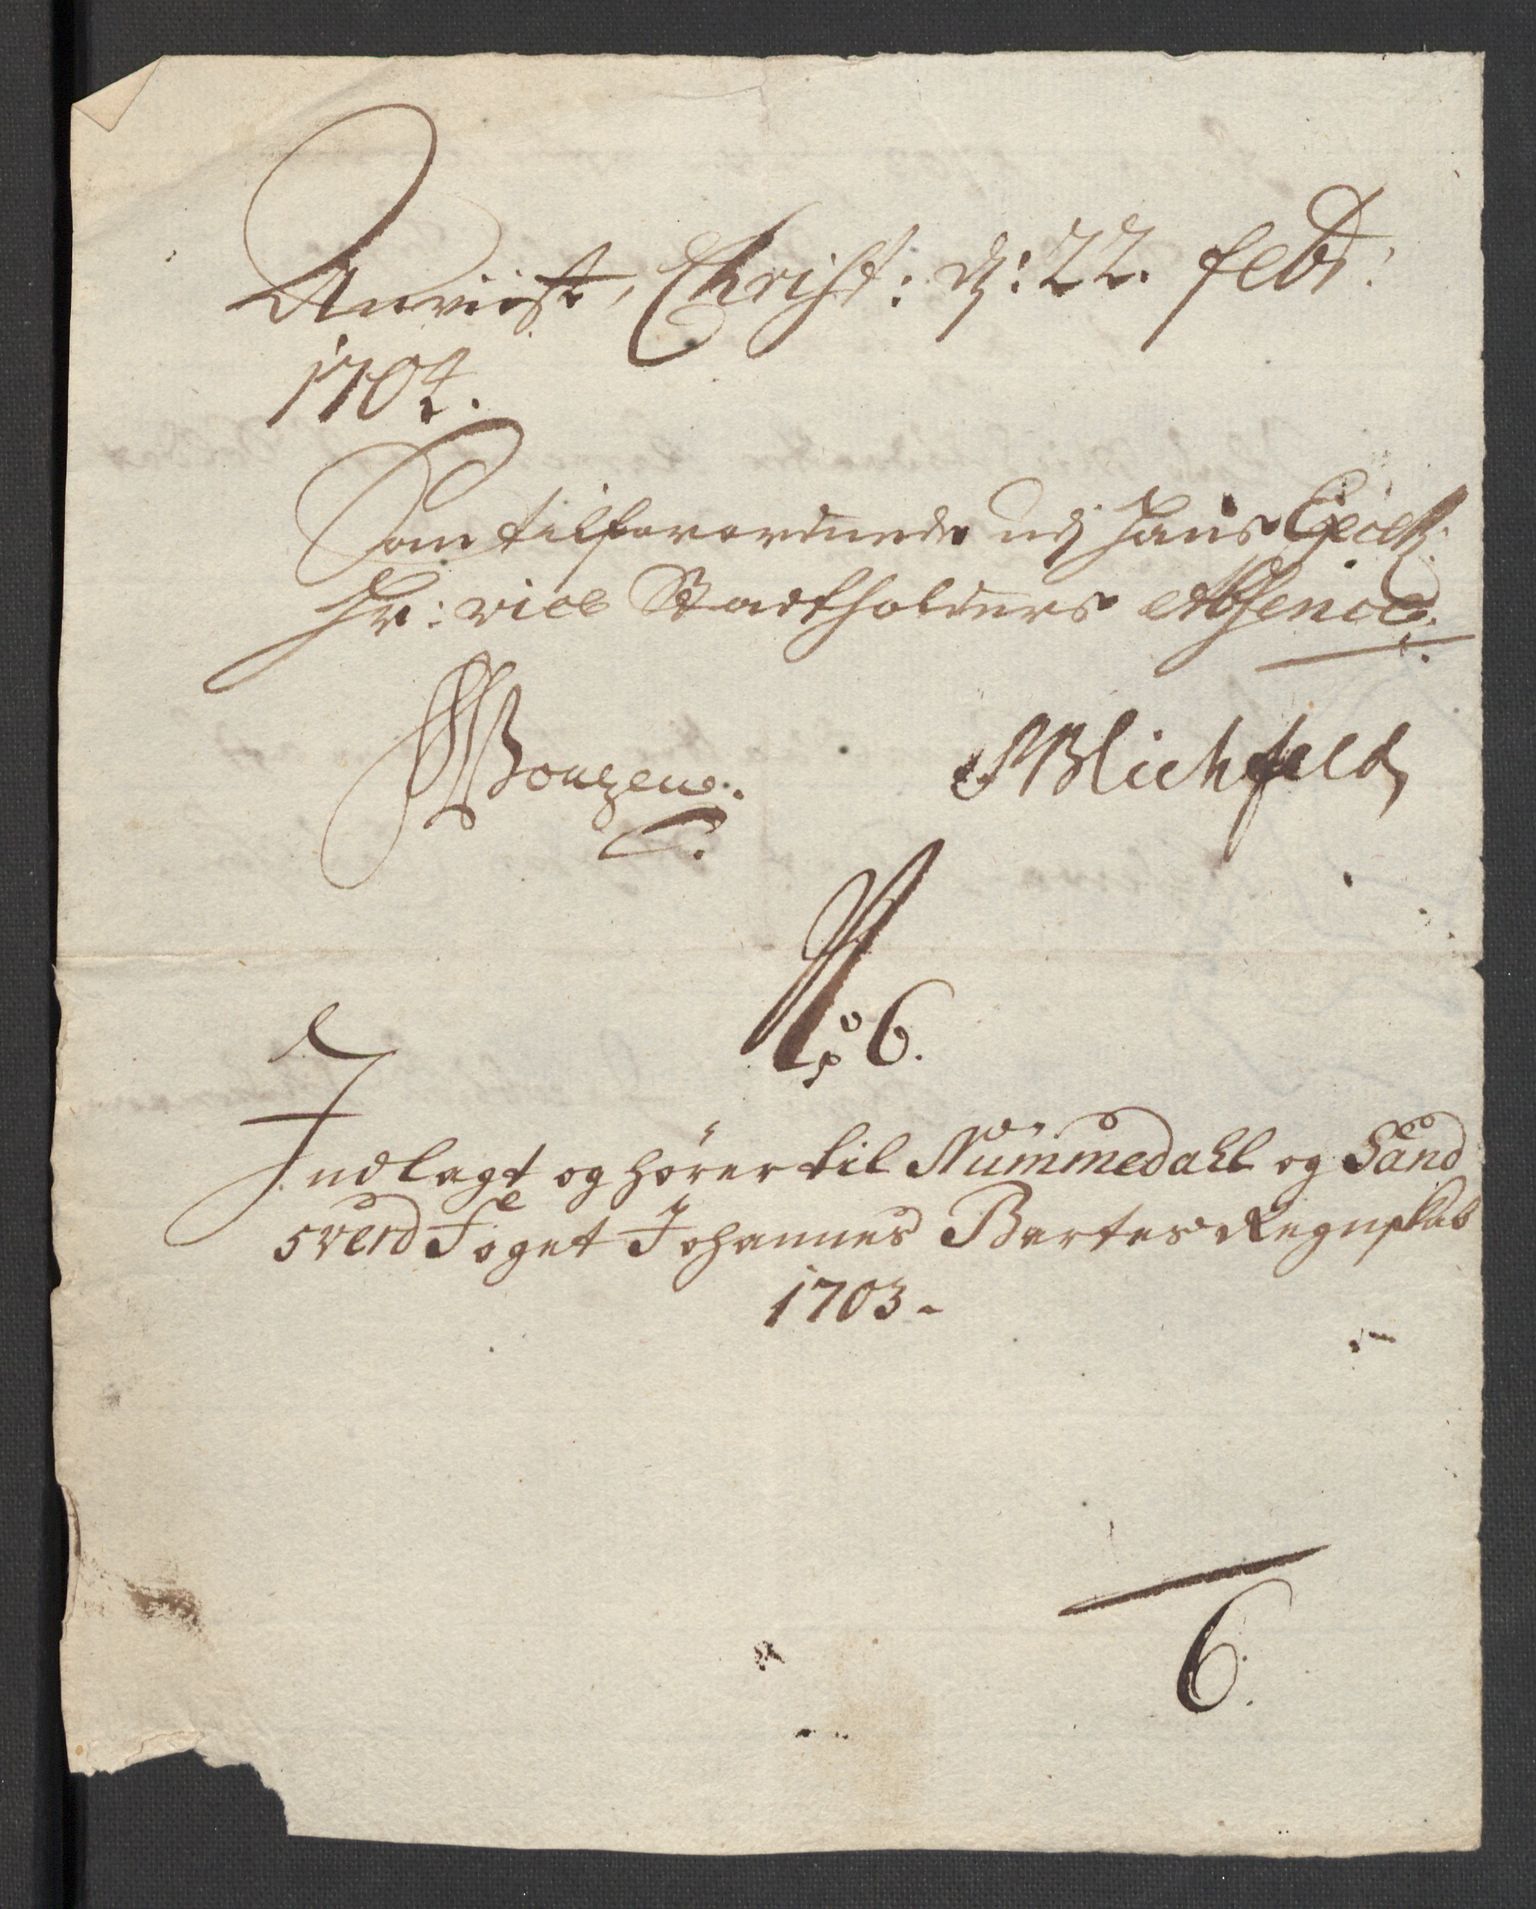 Anviist, Christ: d: 22. febr:
1704.
Som tilforordnede udj Hans Excell:
Hr: vice Stadtholders Absence.
SBlichfeld
No 6.
Indlagt og hører til Nummedahl og Sand
sverd Foget Johannes Bartes Regnskab
1703-
6.